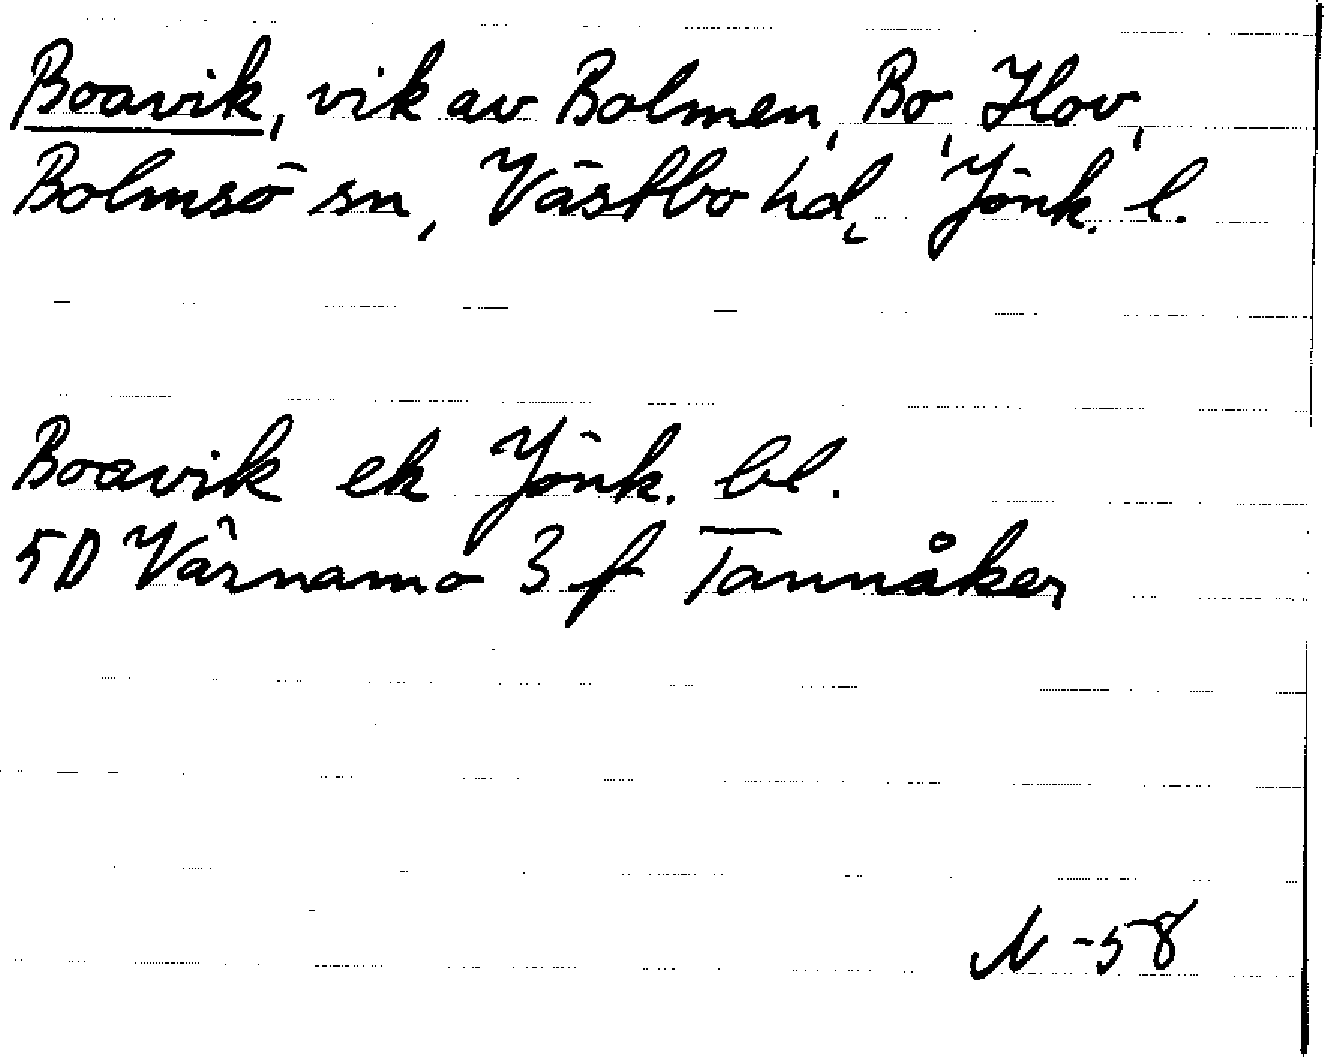 Boavik, vik av Bolmen, Bo, Hov,
Bolmsö sn, Västbo hd, Jönk. l.
Boavik ek Jönk. bl.
5D Värnamo 3 f Tannåker
N -58